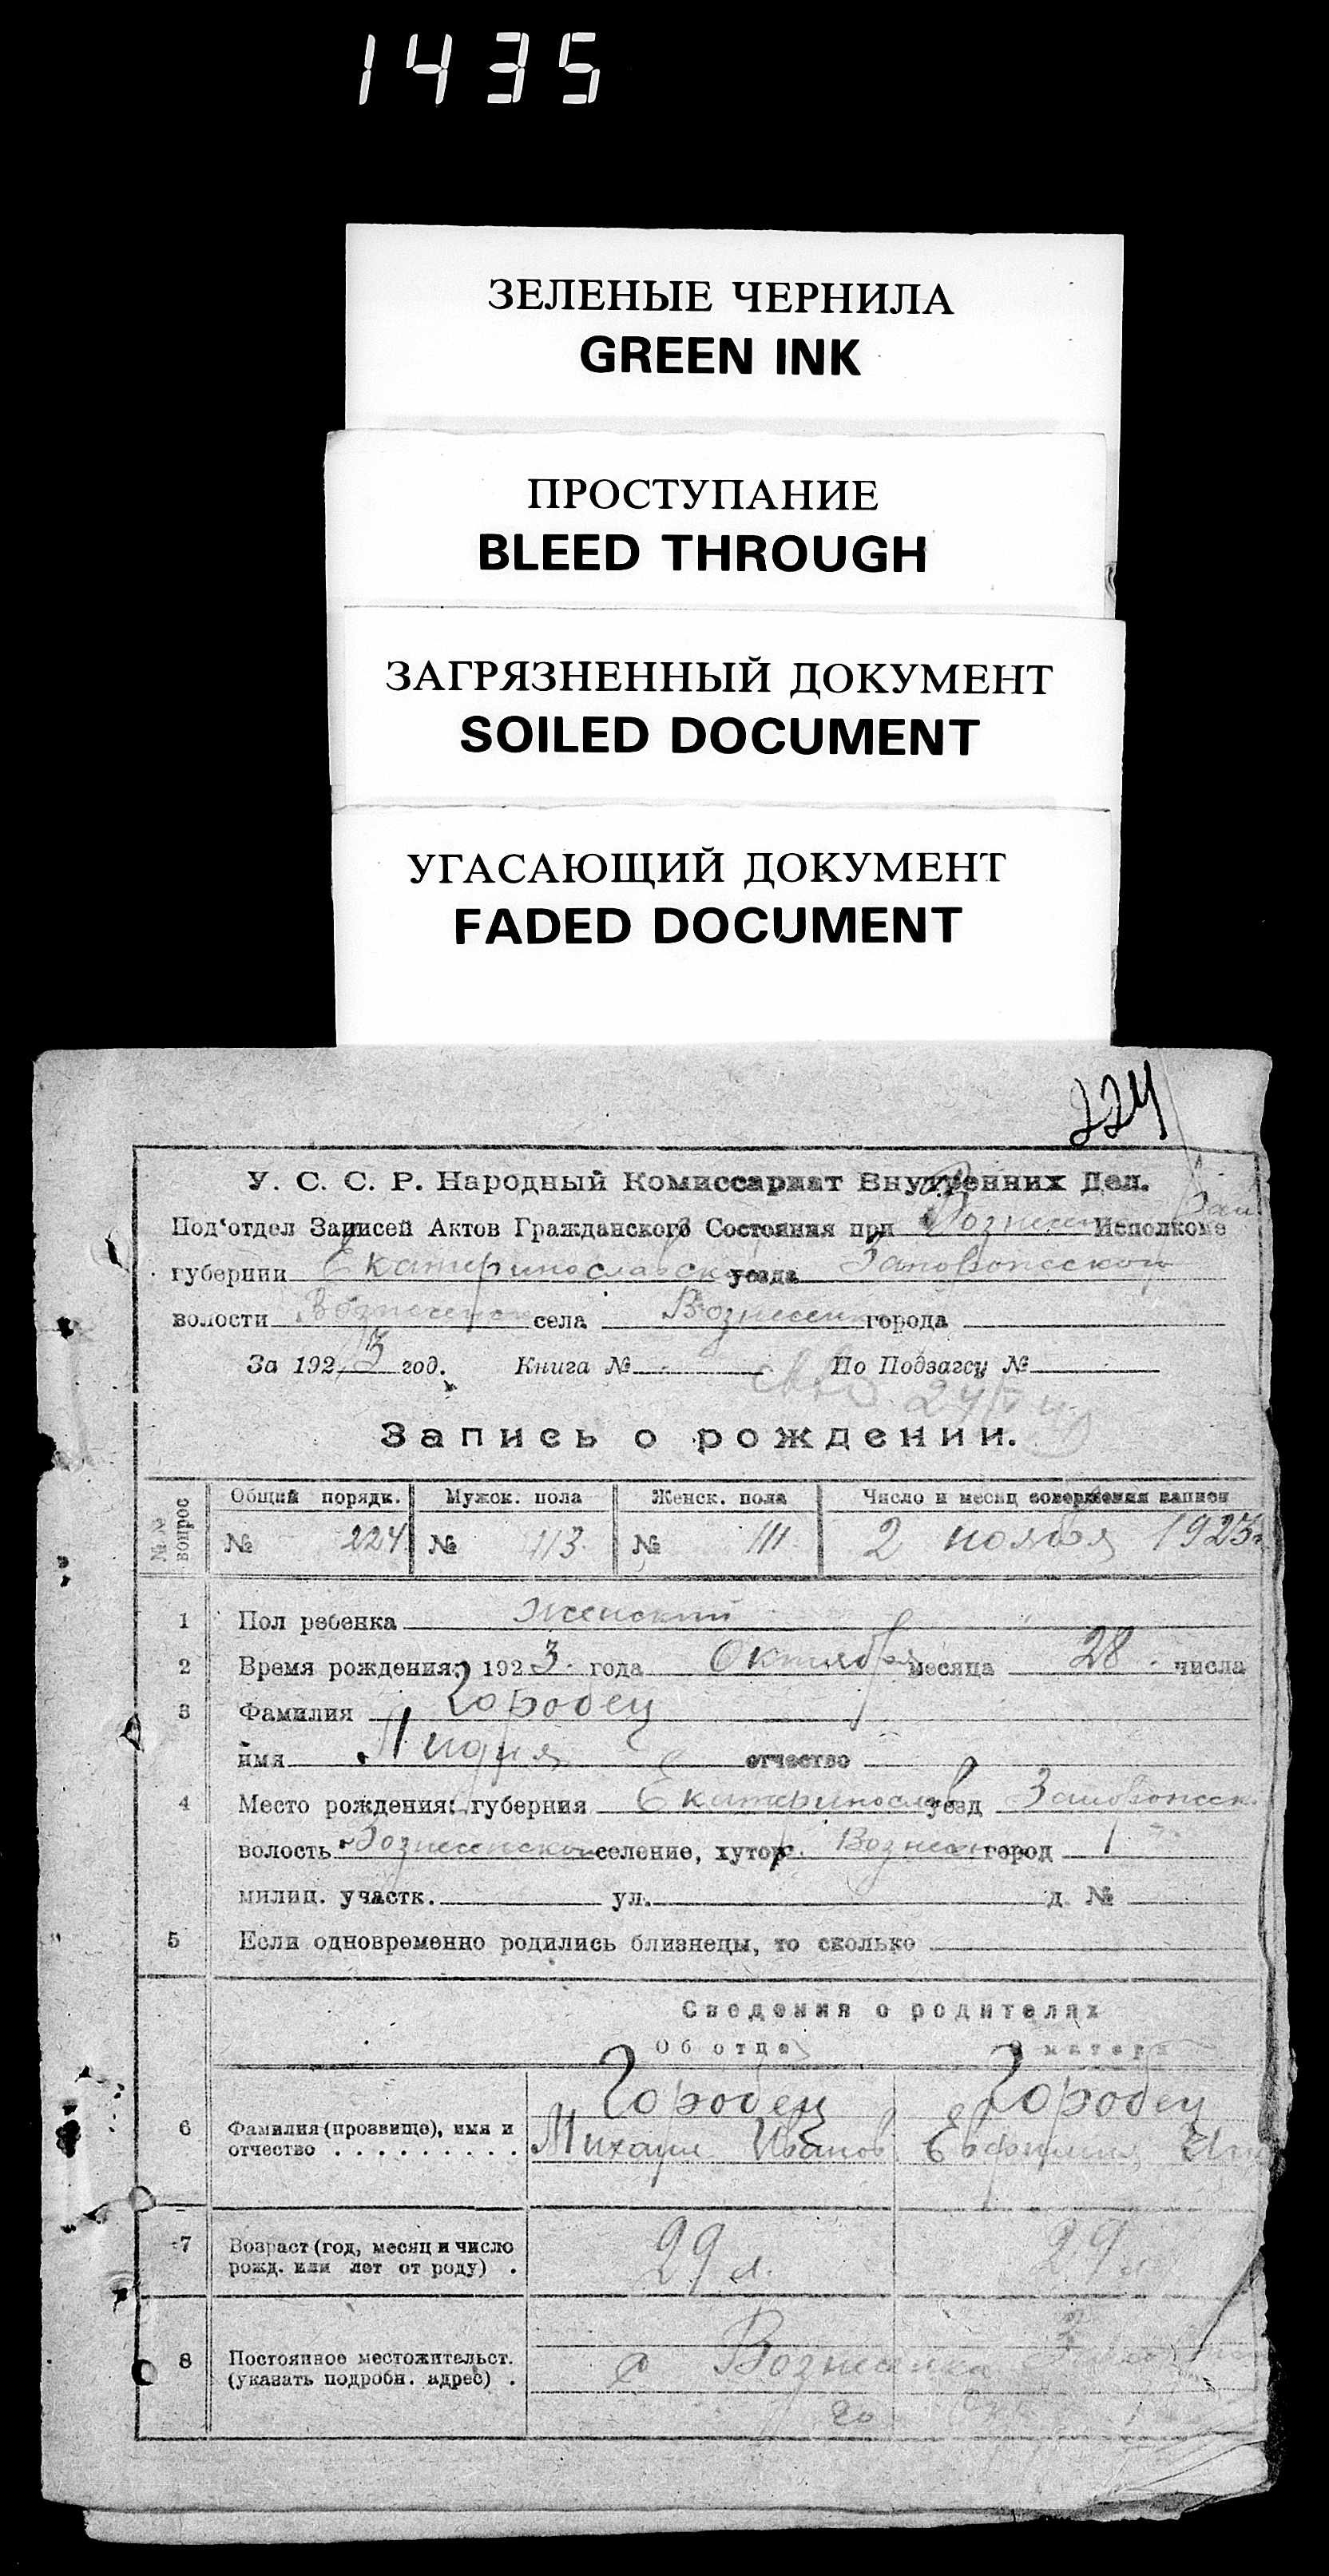 1435
ЗЕЛЕНЫЕ ЧЕРНИЛА
GREEN INK
ПРОСТУПАНИЕ
BLEED THROUGH
ЗАГРЯЗНЕННЫЙ ДОКУМЕНТ
SOILED DOCUMENT
УГАСАЮЩИЙ ДОКУМЕНТ
FADED DOCUMENT
224
У. С. С. Р. Народный Комиссариат Внутренних Дел.
Под‘отдел Записей Актов Гражданского Состояния при Вознесен Исполкоме
губернии Екатеринославск уезда
волости села Вознесен города
За 1923 год. Книга № По Подзагсу №
Запись о рождении.
№№ вопрос
Общий порядк. Мужск. пола Женск. пола Число и месяц совершения записи
№ 224 № 113 № 111 2 ноября 1923 г.
1 Пол ребенка Женский
2 Время рождения: 1923 года Октября месяца 28 числа
3 Фамилия Городец
имя Лидия отчество
4 Место рождения: губерния Екатеринослав уезд
волость Вознесенско селение, хутор. Вознесен город
милиц. участк. ул. д. №
5 Если одновременно родились близнецы, то сколько
Сведения о родителях
Об отце О матери
Городец Городец
6 Фамилия (прозвище), имя и
отчество Михаил Иванов Евфимия
7 Возраст (год, месяц и число
рожд. или лет от роду) . 29 л. 29 л
8 Постоянное местожительст.
(указать подробн. адрес) . с Вознесенка